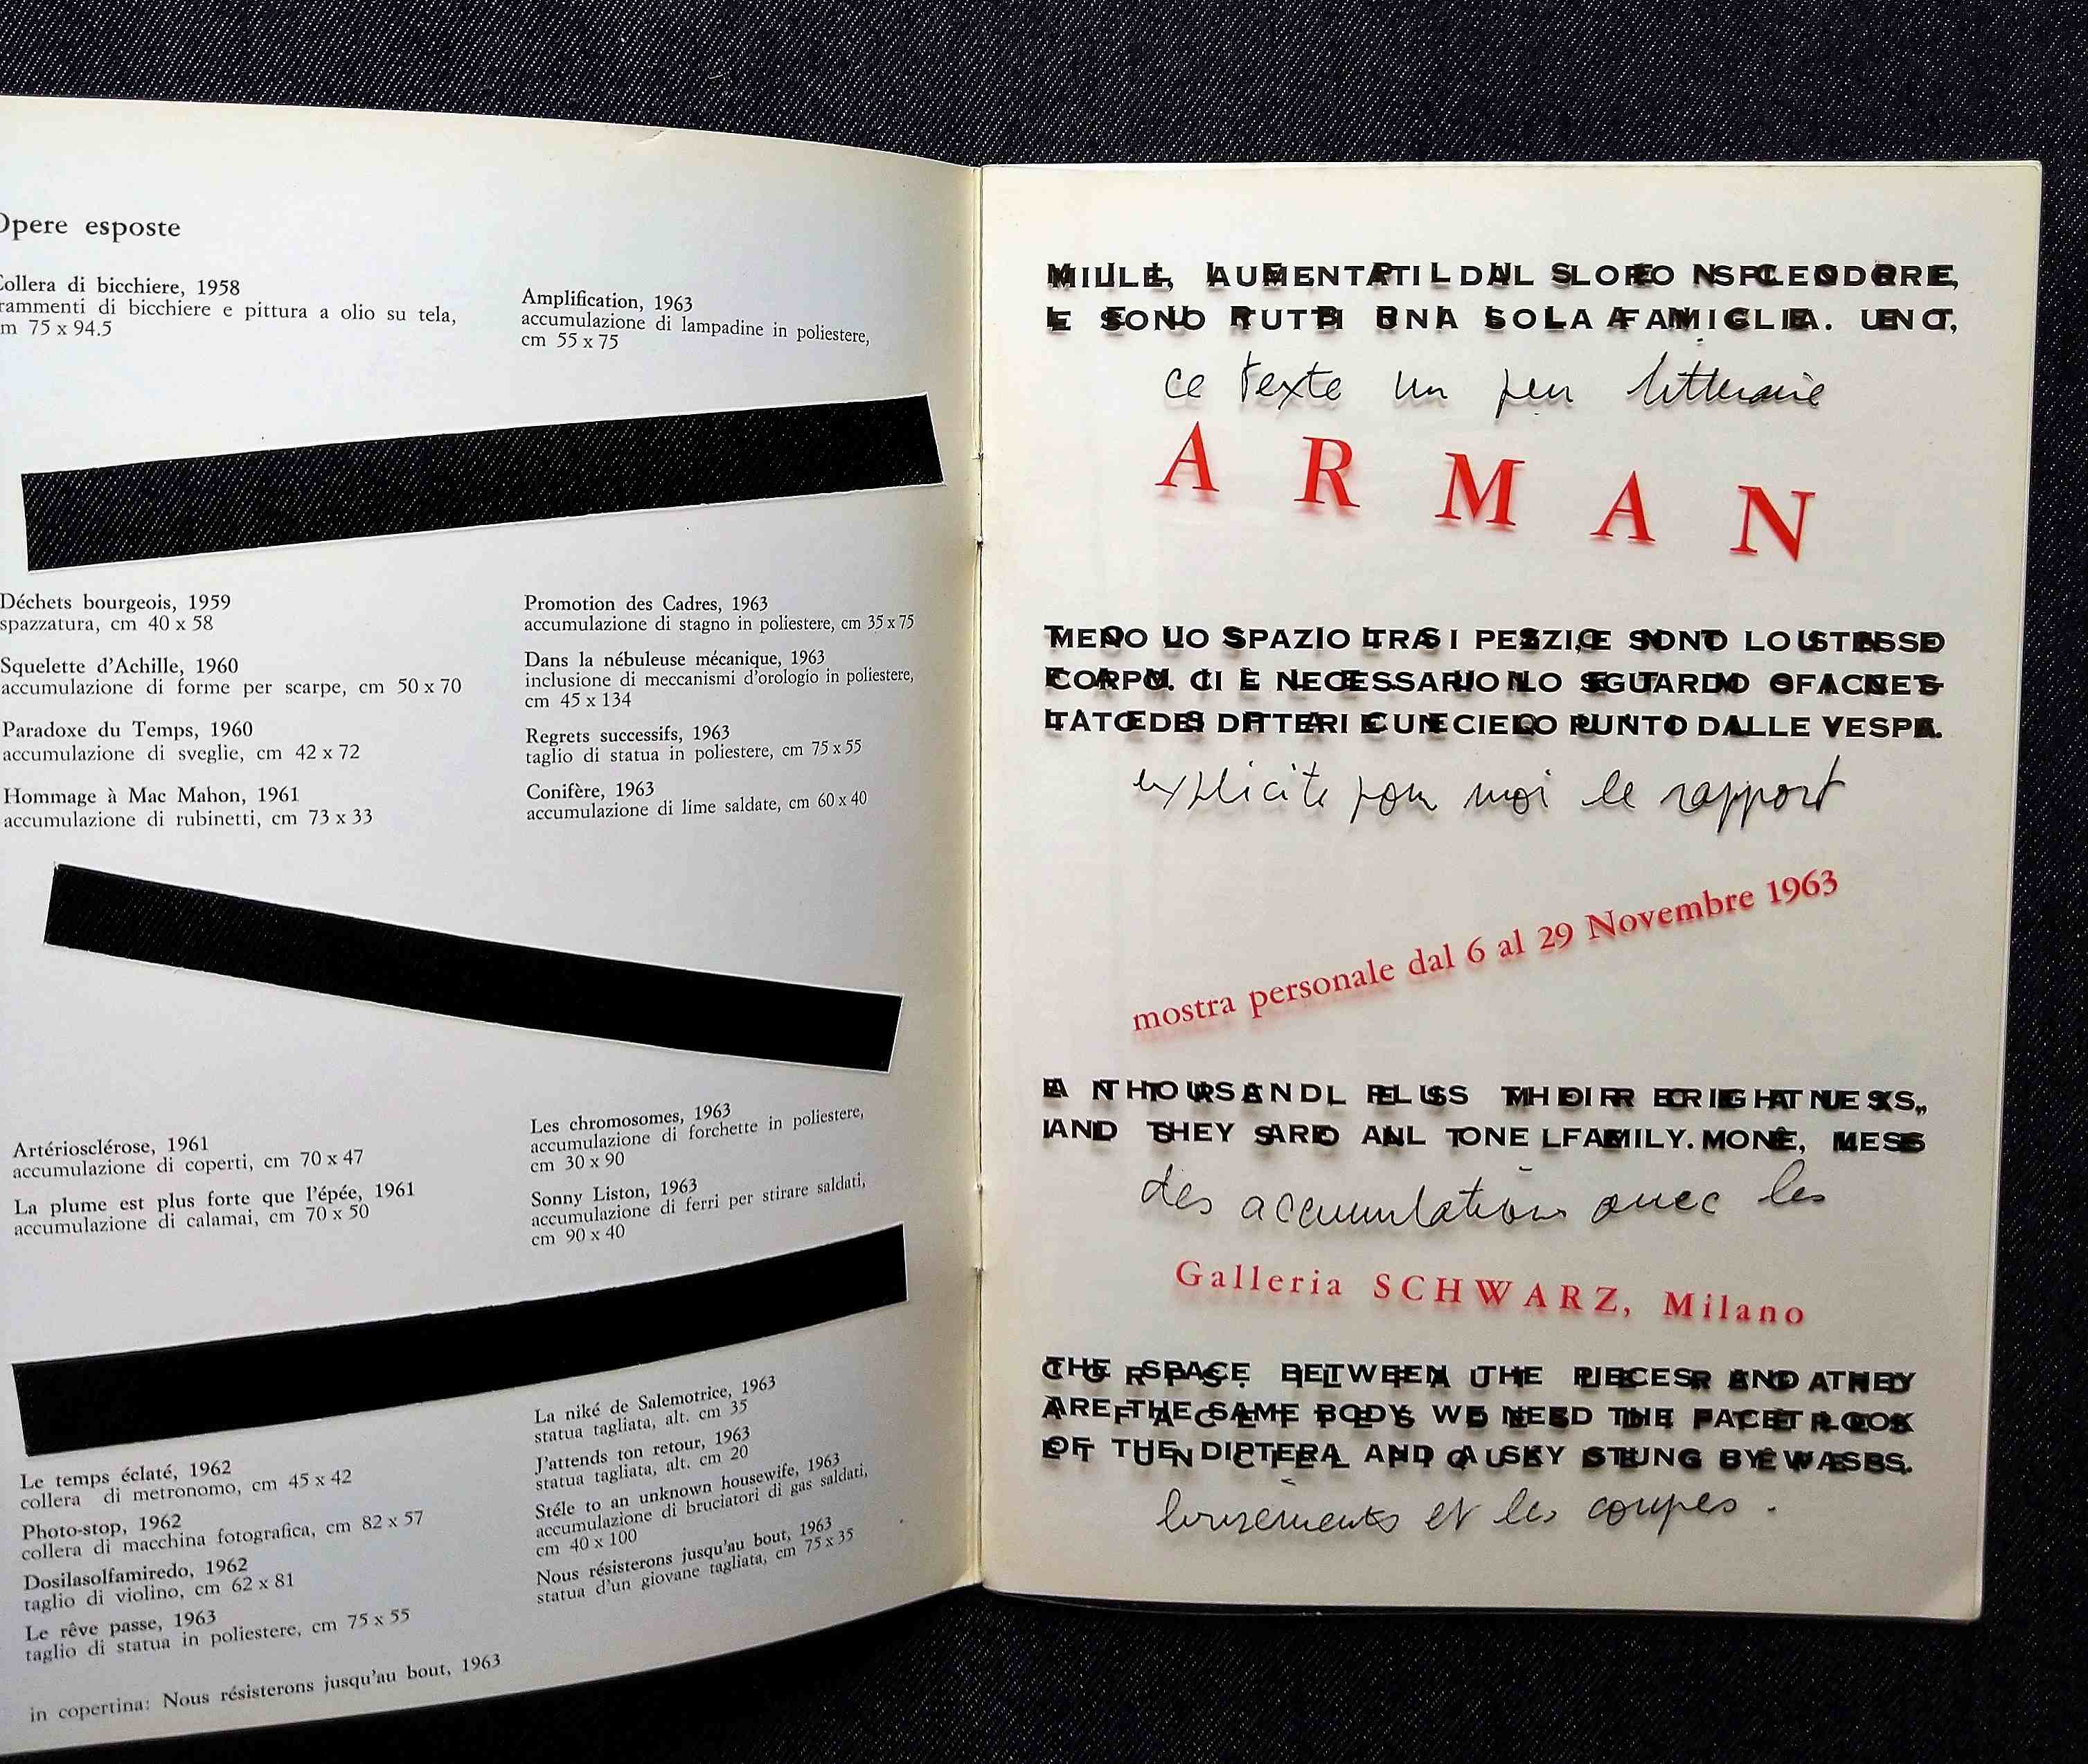 Opere esposte
Collera di bicchiere, 1958
frammenti di bicchiere e pittura a olio su tela,
cm 75 x 94.5
Déchets bourgeois, 1959
spazzatura, cm 40 x 58
Squelette d'Achille, 1960
accumulazione di forme per scarpe, cm 50 x 70
Paradoxe du Temps, 1960
accumulazione di sveglie, cm 42 x 72
Hommage à Mac Mahon, 1961
accumulazione di rubinetti, cm 73 x 33
Artériosclérose, 1961
accumulazione di coperti, cm 70 x 47
La plume est plus forte que l'épée, 1961
accumulazione di calamai, cm 70 x 50
Le temps éclaté, 1962
collera di metronomo, cm 45 x 42
Photo-stop, 1962
collera di macchina fotografica, cm 82 x 57
Dosilasolfamiredo, 1962
taglio di violino, cm 62 x 81
Le rêve passe, 1963
taglio di statua in poliestere, cm 75 x 55
in copertina: Nous résisterons jusqu'au bout, 1963
Amplification, 1963
accumulazione di lampadine in poliestere,
cm 55 x 75
Promotion des Cadres, 1963
accumulazione di stagno in poliestere, cm 35 x 75
Dans la nébuleuse mécanique, 1963
inclusione di meccanismi d'orologio in poliestere,
cm 45 x 134
Regrets successifs, 1963
taglio di statua in poliestere, cm 75 x 55
Conifère, 1963
accumulazione di lime saldate, cm 60 x 40
Les chromosomes, 1963
accumulazione di forchette in poliestere,
cm 30 x 90
Sonny Liston, 1963
accumulazione di ferri per stirare saldati,
cm 90 x 40
La niké de Salemotrice, 1963
statua tagliata, alt. cm 35
J'attends ton retour, 1963
statua tagliata, alt. cm 20
Stéle to an unknown housewife, 1963
accumulazione di bruciatori di gas saldati,
cm 40 x 100
Nous résisterons jusqu'au bout, 1963
statua d'un giovane tagliata, cm 75 x 35
MILLE, AUMENTATI DAL LORO SPLENDORE,
E SONO TUTTI UNA SOLA FAMIGLIA. UNO,
ce texte un peu litteraire
ARMAN
MENO LO SPAZIO TRA I PEZZI, E SONO LO STESSO
CORPO. CI È NECESSARIO LO SGUARDO SFACCET-
TATO DEI DITTERI E UN CIELO PUNTO DALLE VESPE.
explicite pour moi le rapport
mostra personale dal 6 al 29 Novembre 1963
A THOUSAND PLUS THEIR BRIGHTNESS,
AND THEY ARE ALL ONE FAMILY. ONE, LESS
des accumulations avec les
Galleria SCHWARZ, Milano
THE SPACE BETWEEN THE PIECES AND THEY
ARE THE SAME BODY WE NEED THE FACET LOOK
OF THE DIPTERA AND A SKY STUNG BY WASPS.
et les coupes.